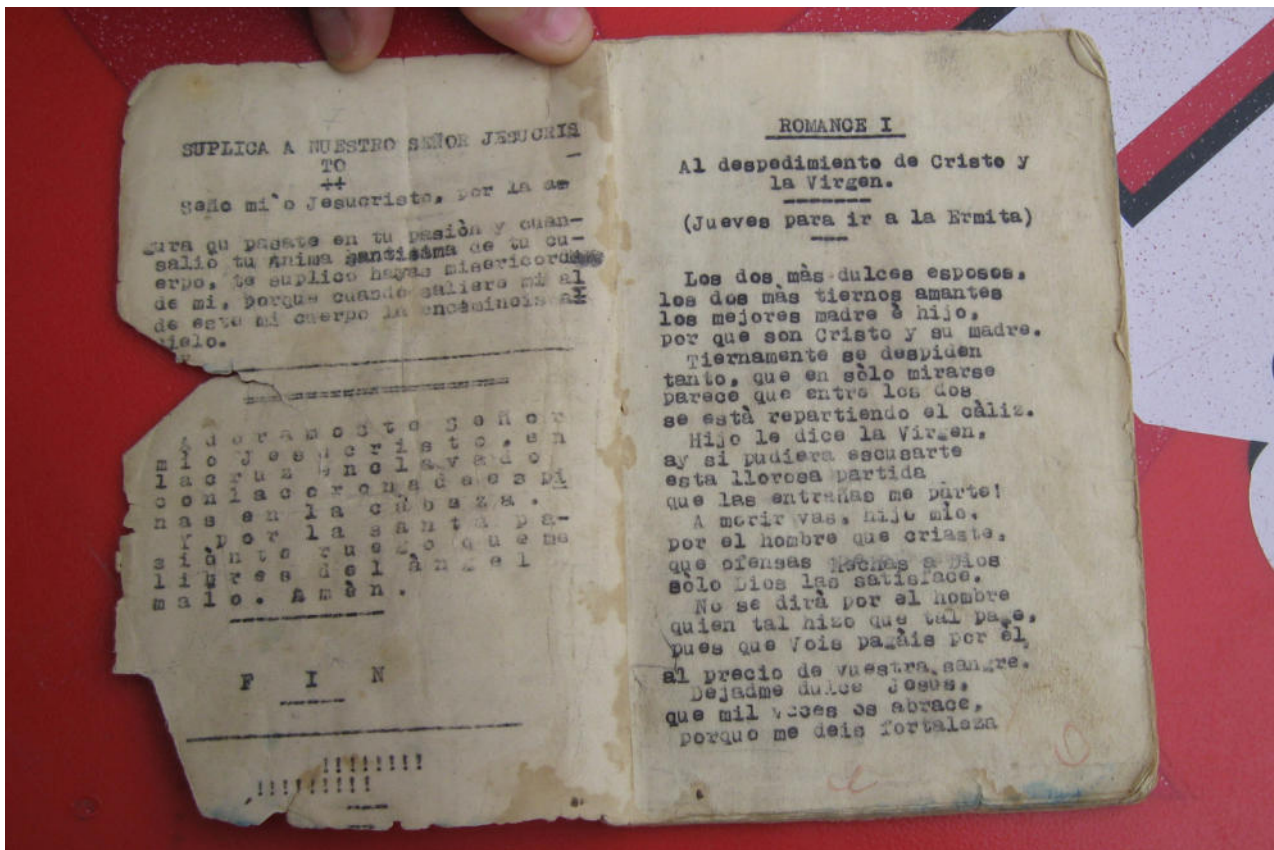 SUPLICA A NUESTRO SEÑOR JESUCRIS
TO
++
Seño mi`o Jesucristo, por la am
gura qu pasate en tu pasiòn y cuan-
salio tu Anima santisima de tu cu-
erpo, te suplico hayas misericordia
de mi, porque cuando saliere mi al
de este mi cuerpo la encaminois al
ielo.
Adoramoste Señor
mio Jesucristo, en
lacruz enclavado
conlacoronadeespi
nas en la cabaza.
Y por la santa pa-
siònte ruego queme
libres del àngel
malo. Amèn.
F I N
!!!!!!!!
!!!!!!!!!
ROMANCE I
Al despedimiento de Cristo y
la Virgen.
(Jueves para ir a la Ermita)
Los dos màs dulces esposos,
los dos màs tiernos amantes
los mejores madre è hijo,
por que son Cristo y su madre.
Tiernamente se despiden
tanto, que en sòlo mirarse
parece que entre los dos
se està repartiendo el càliz.
Hijo le dice la Virgen,
ay si pudiera escusarte
esta llorosa partida
que las entrañas me parte!
A morir vas, hijo mìo,
por el hombre que criaste,
que ofensas hechas a Dios
sòlo Dios las satisface.
No se dirà por el hombre
quien tal hizo que tal page,
pues que Vois pagàis por èl
al precio de vuestra sangre.
Dejadme dulce Jesus,
que mil veces os abrace,
porquo me deis fortaleza